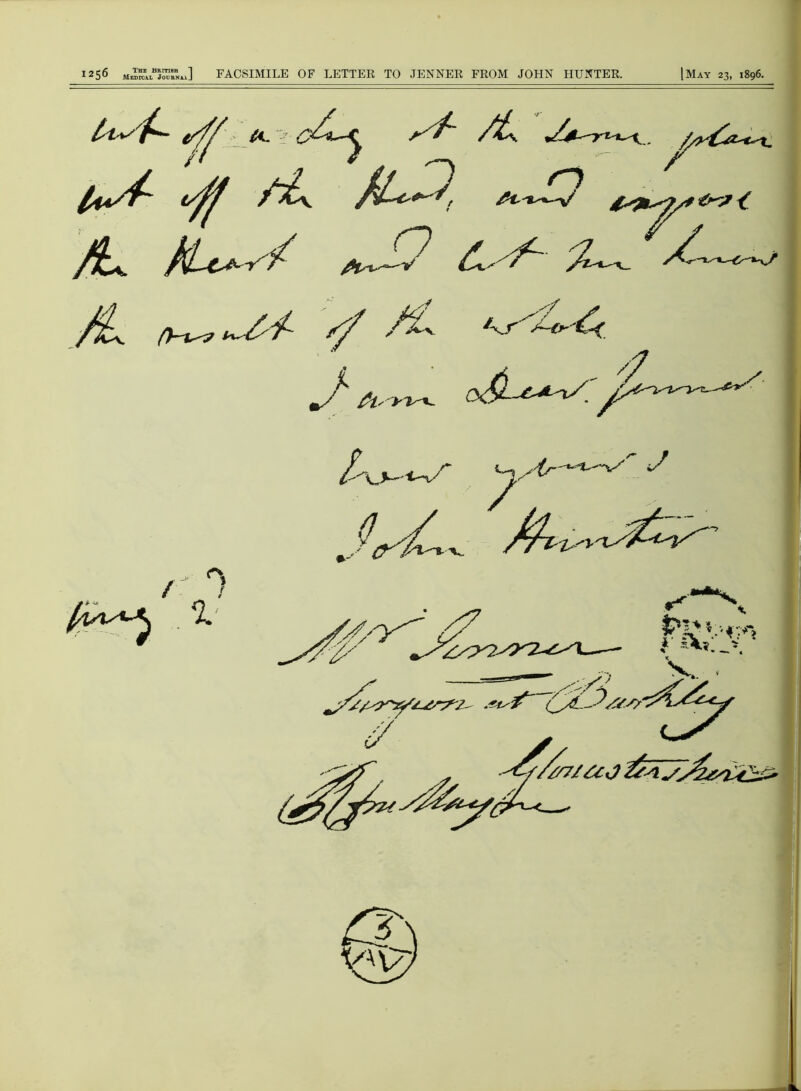 1256 THE BRITISH MEDICAL JOURNAL] FACSIMILE OF LETTER TO JENNER FROM JOHN HUNTER. [MAY 23, 1896.
Cut off a leg at the same place
cut off the Head, and expose
the Heart and let me know
the result of the whole
I am Dear Jenner
Ever yours J
John Hunter
Mr Jenner
Surgeon at Berkley
Gloucestershire
3
AV